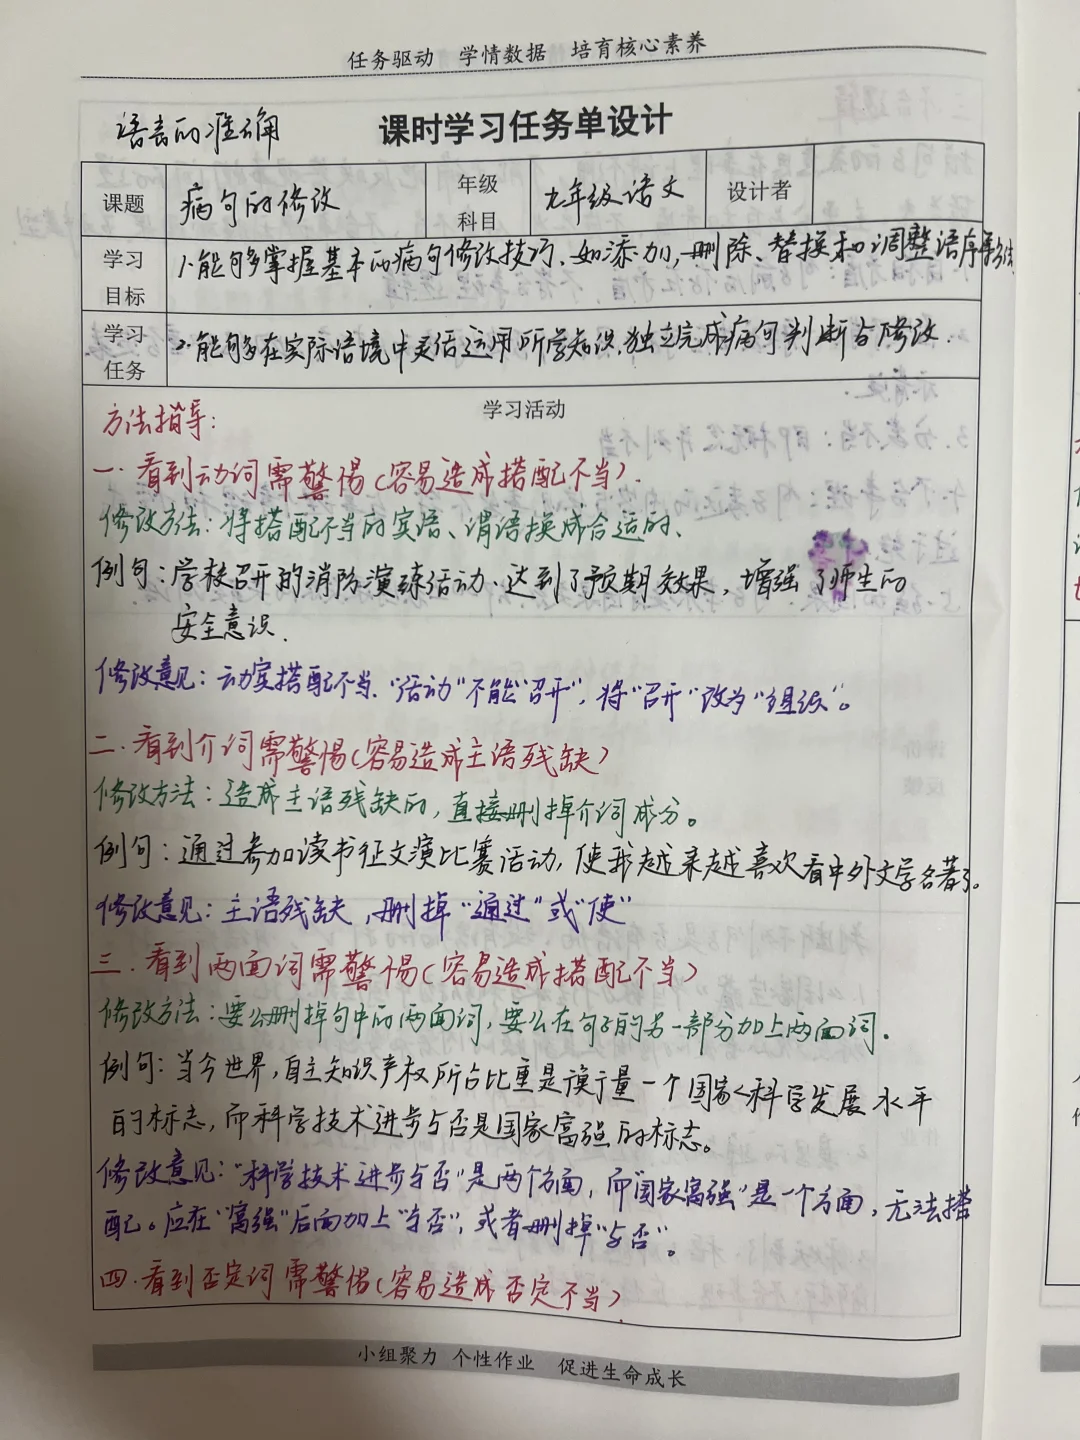 任务驱动 学情数据 培育核心素养
语言的准确
课时学习任务单设计
课题 病句的修改 年级科目 九年级语文 设计者
学习目标 1.能够多掌握基本的病句修改技巧、如添加,删除、替换和调整语序等方法
学习任务 2.能够在实际语境中灵活运用所学知识,独立完成病句判断与修改.
学习活动
方法指导:
一.看到动词需警惕(容易造成搭配不当).
修改方法:将搭配不当的宾语、谓语换成合适的、
例句:学校召开的消防演练活动、达到了预期效果,增强了师生的
安全意识.
修改意见:动宾搭配不当、“活动”不能“召开”,将“召开”改为“组织”。
二.看到介词需警惕(容易造成主语残缺)
修改方法:造成主语残缺的,直接删掉介词成分。
例句:通过参加读书征文演比赛活动,使我越来越喜欢看中外文学名著了。
修改意见:主语残缺,删掉“通过”或“使”
三.看到两面词需警惕(容易造成搭配不当)
修改方法:要么删掉句中的两面词,要么在句子的另一部分加上两面词.
例句:当今世界,自主知识产权所占比重是衡量一个国家科学发展水平
的标志,而科学技术进步与否是国家富强的标志。
修改意见:“科学技术进步与否”是两个方面,而“国家富强”是一个方面,无法搭
配。应在“富强”后面加上“与否”,或者删掉“与否”。
四.看到否定词需警惕(容易造成否定不当)
小组聚力 个性作业 促进生命成长